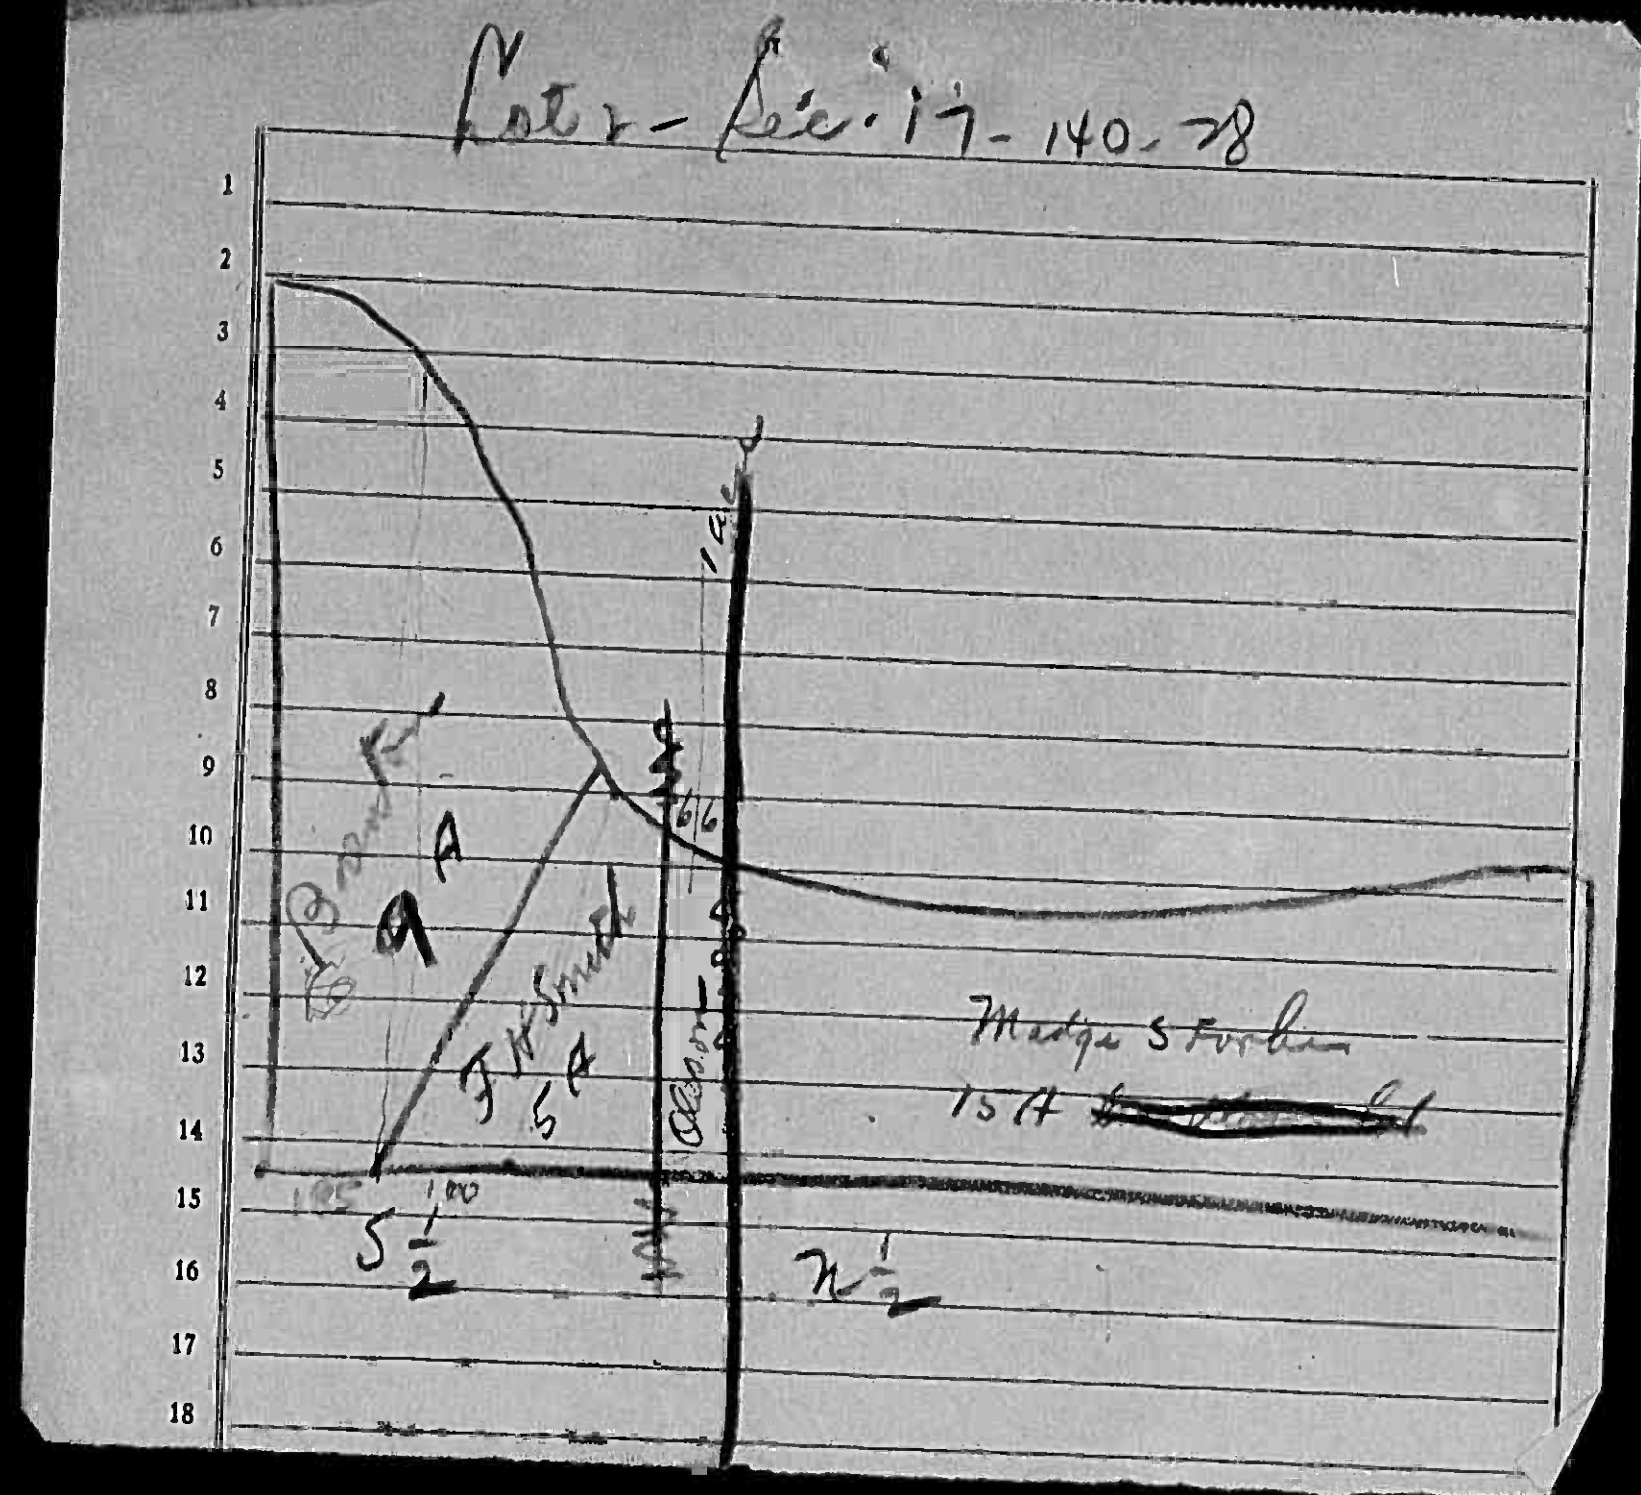 Lot 2 - Sec. 17 - 140 - 28
1
2
3
4
5
6
7
8
9
10
11
12
13
14
15
16
17
18
1 ac
66
A
9
F H Smith
5 A
Oleson
Madge S Forbes
15 A
105
100
S 1/2
N 1/2